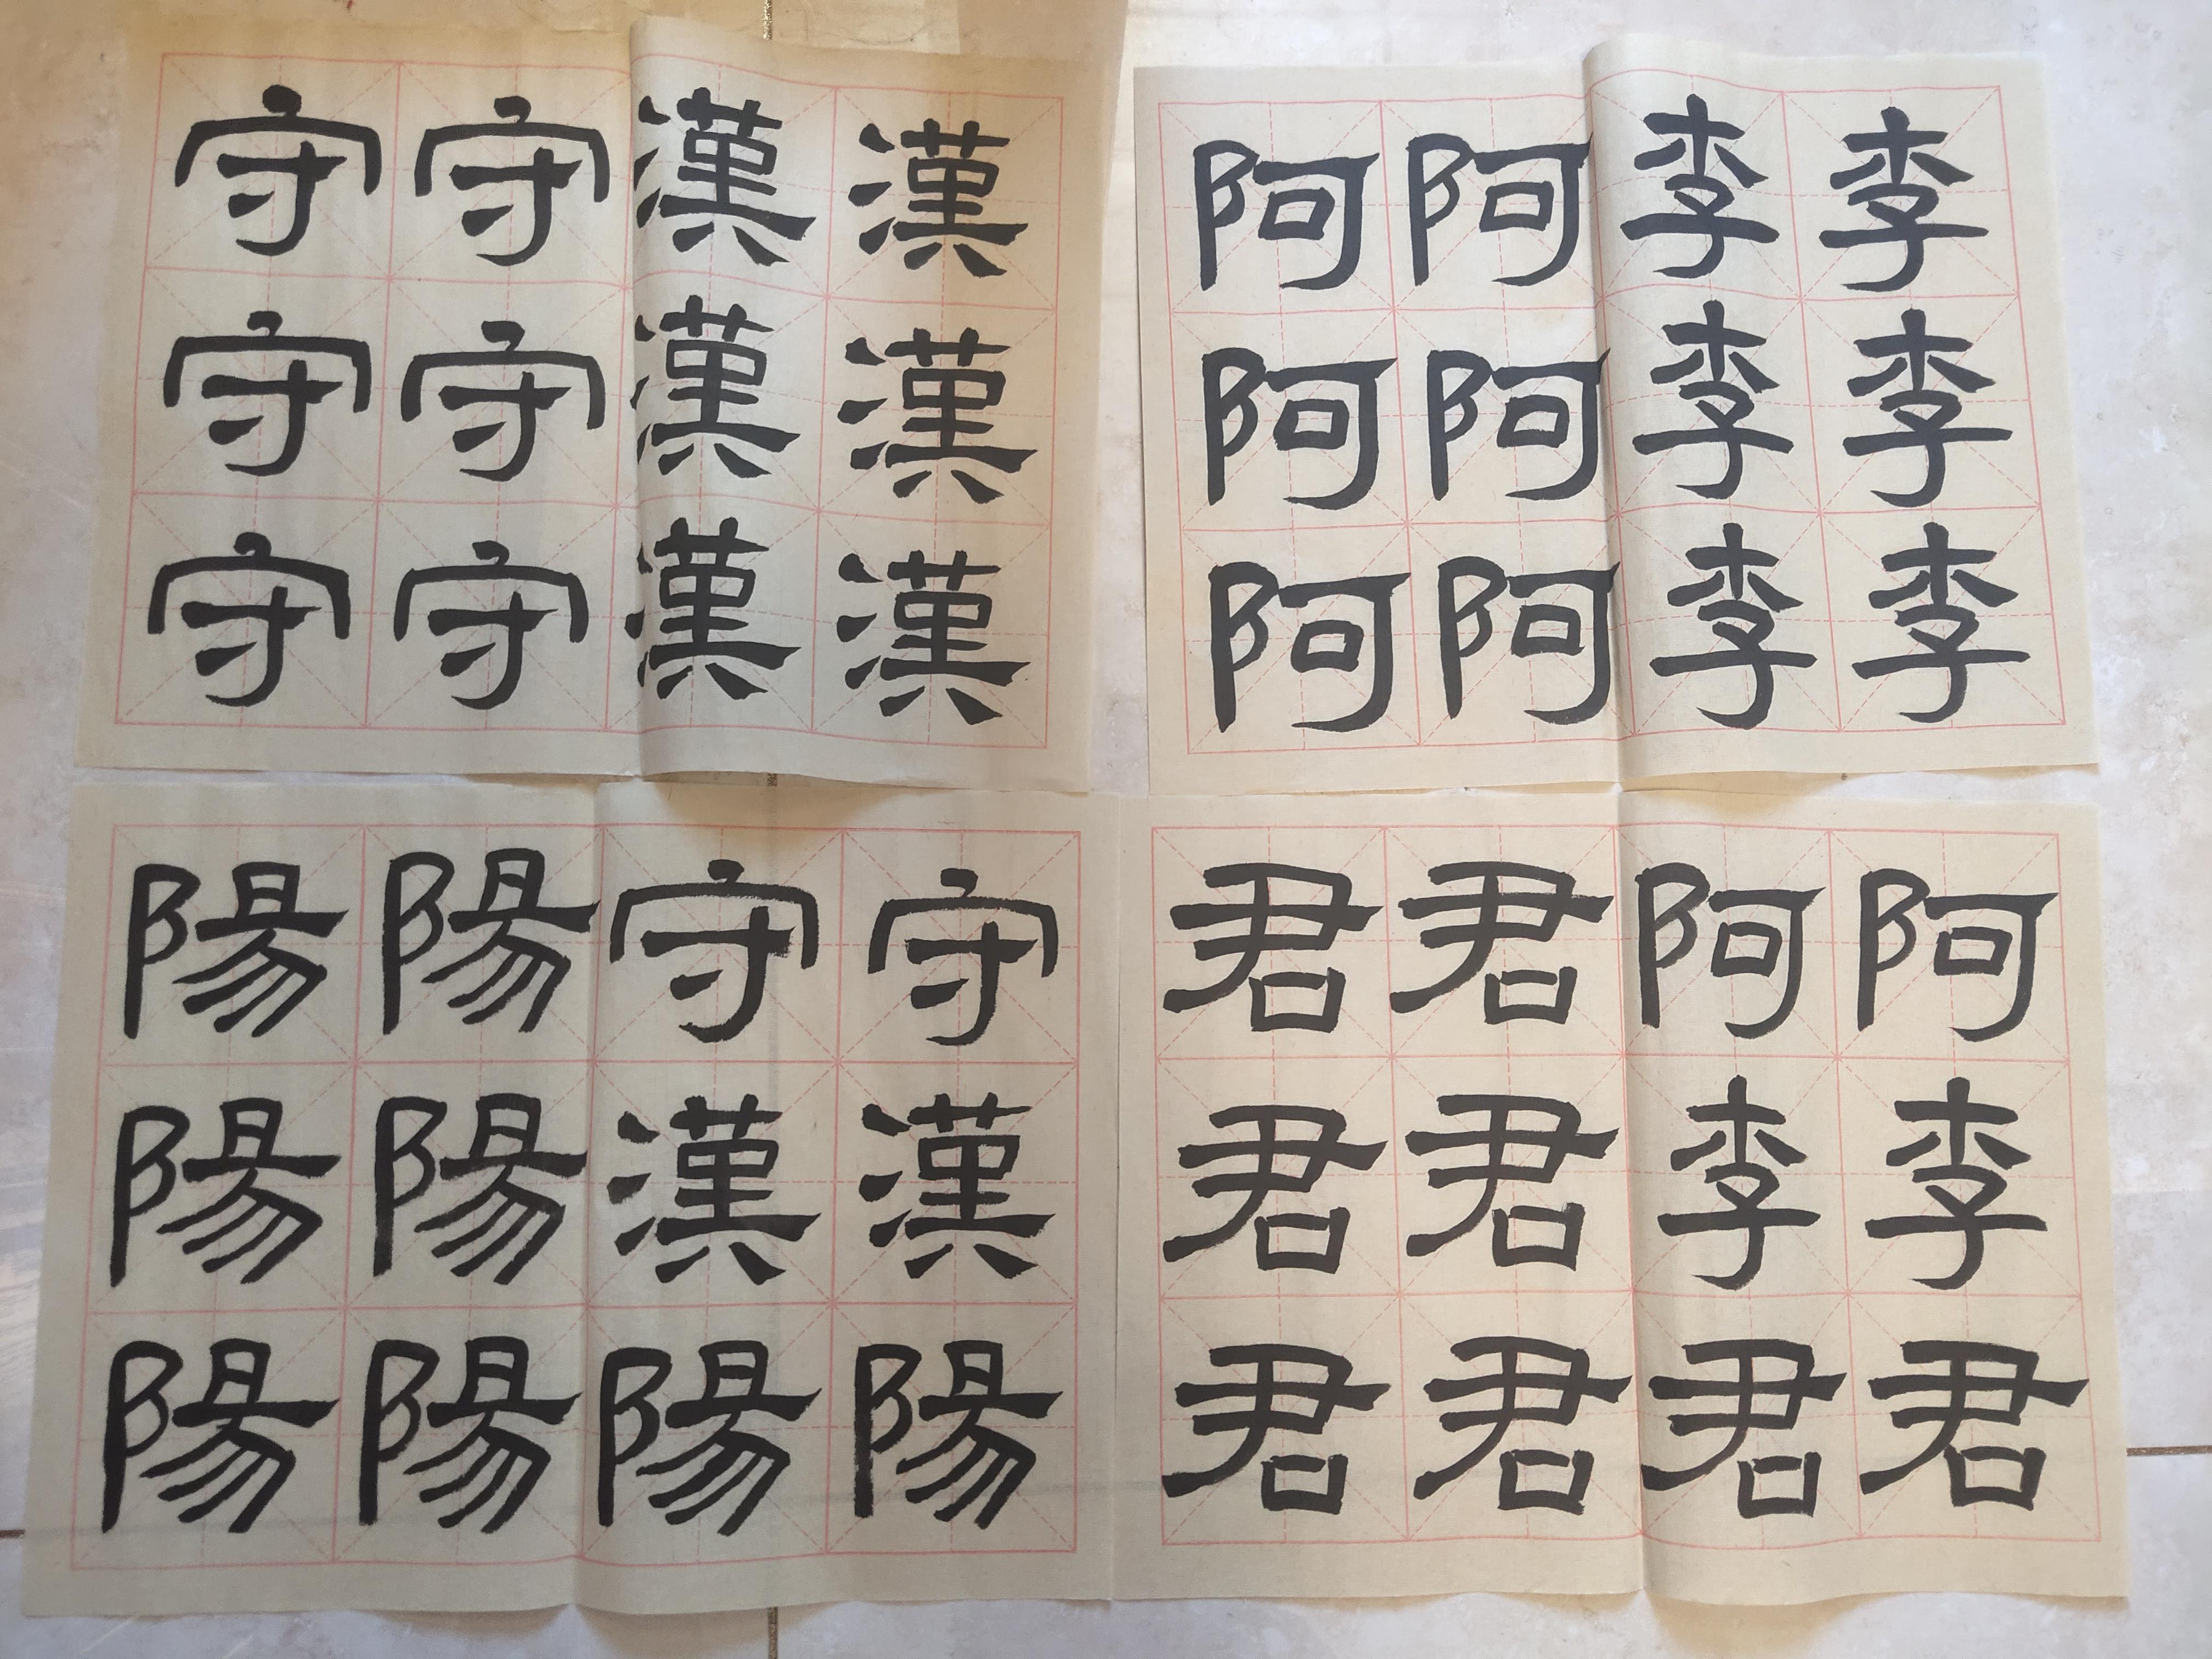 漢漢漢
漢漢漢
守守守
守守守
李李李
李李李
阿阿阿
阿阿阿
守漢陽
守漢陽
陽陽陽
陽陽陽
阿李君
阿李君
君君君
君君君